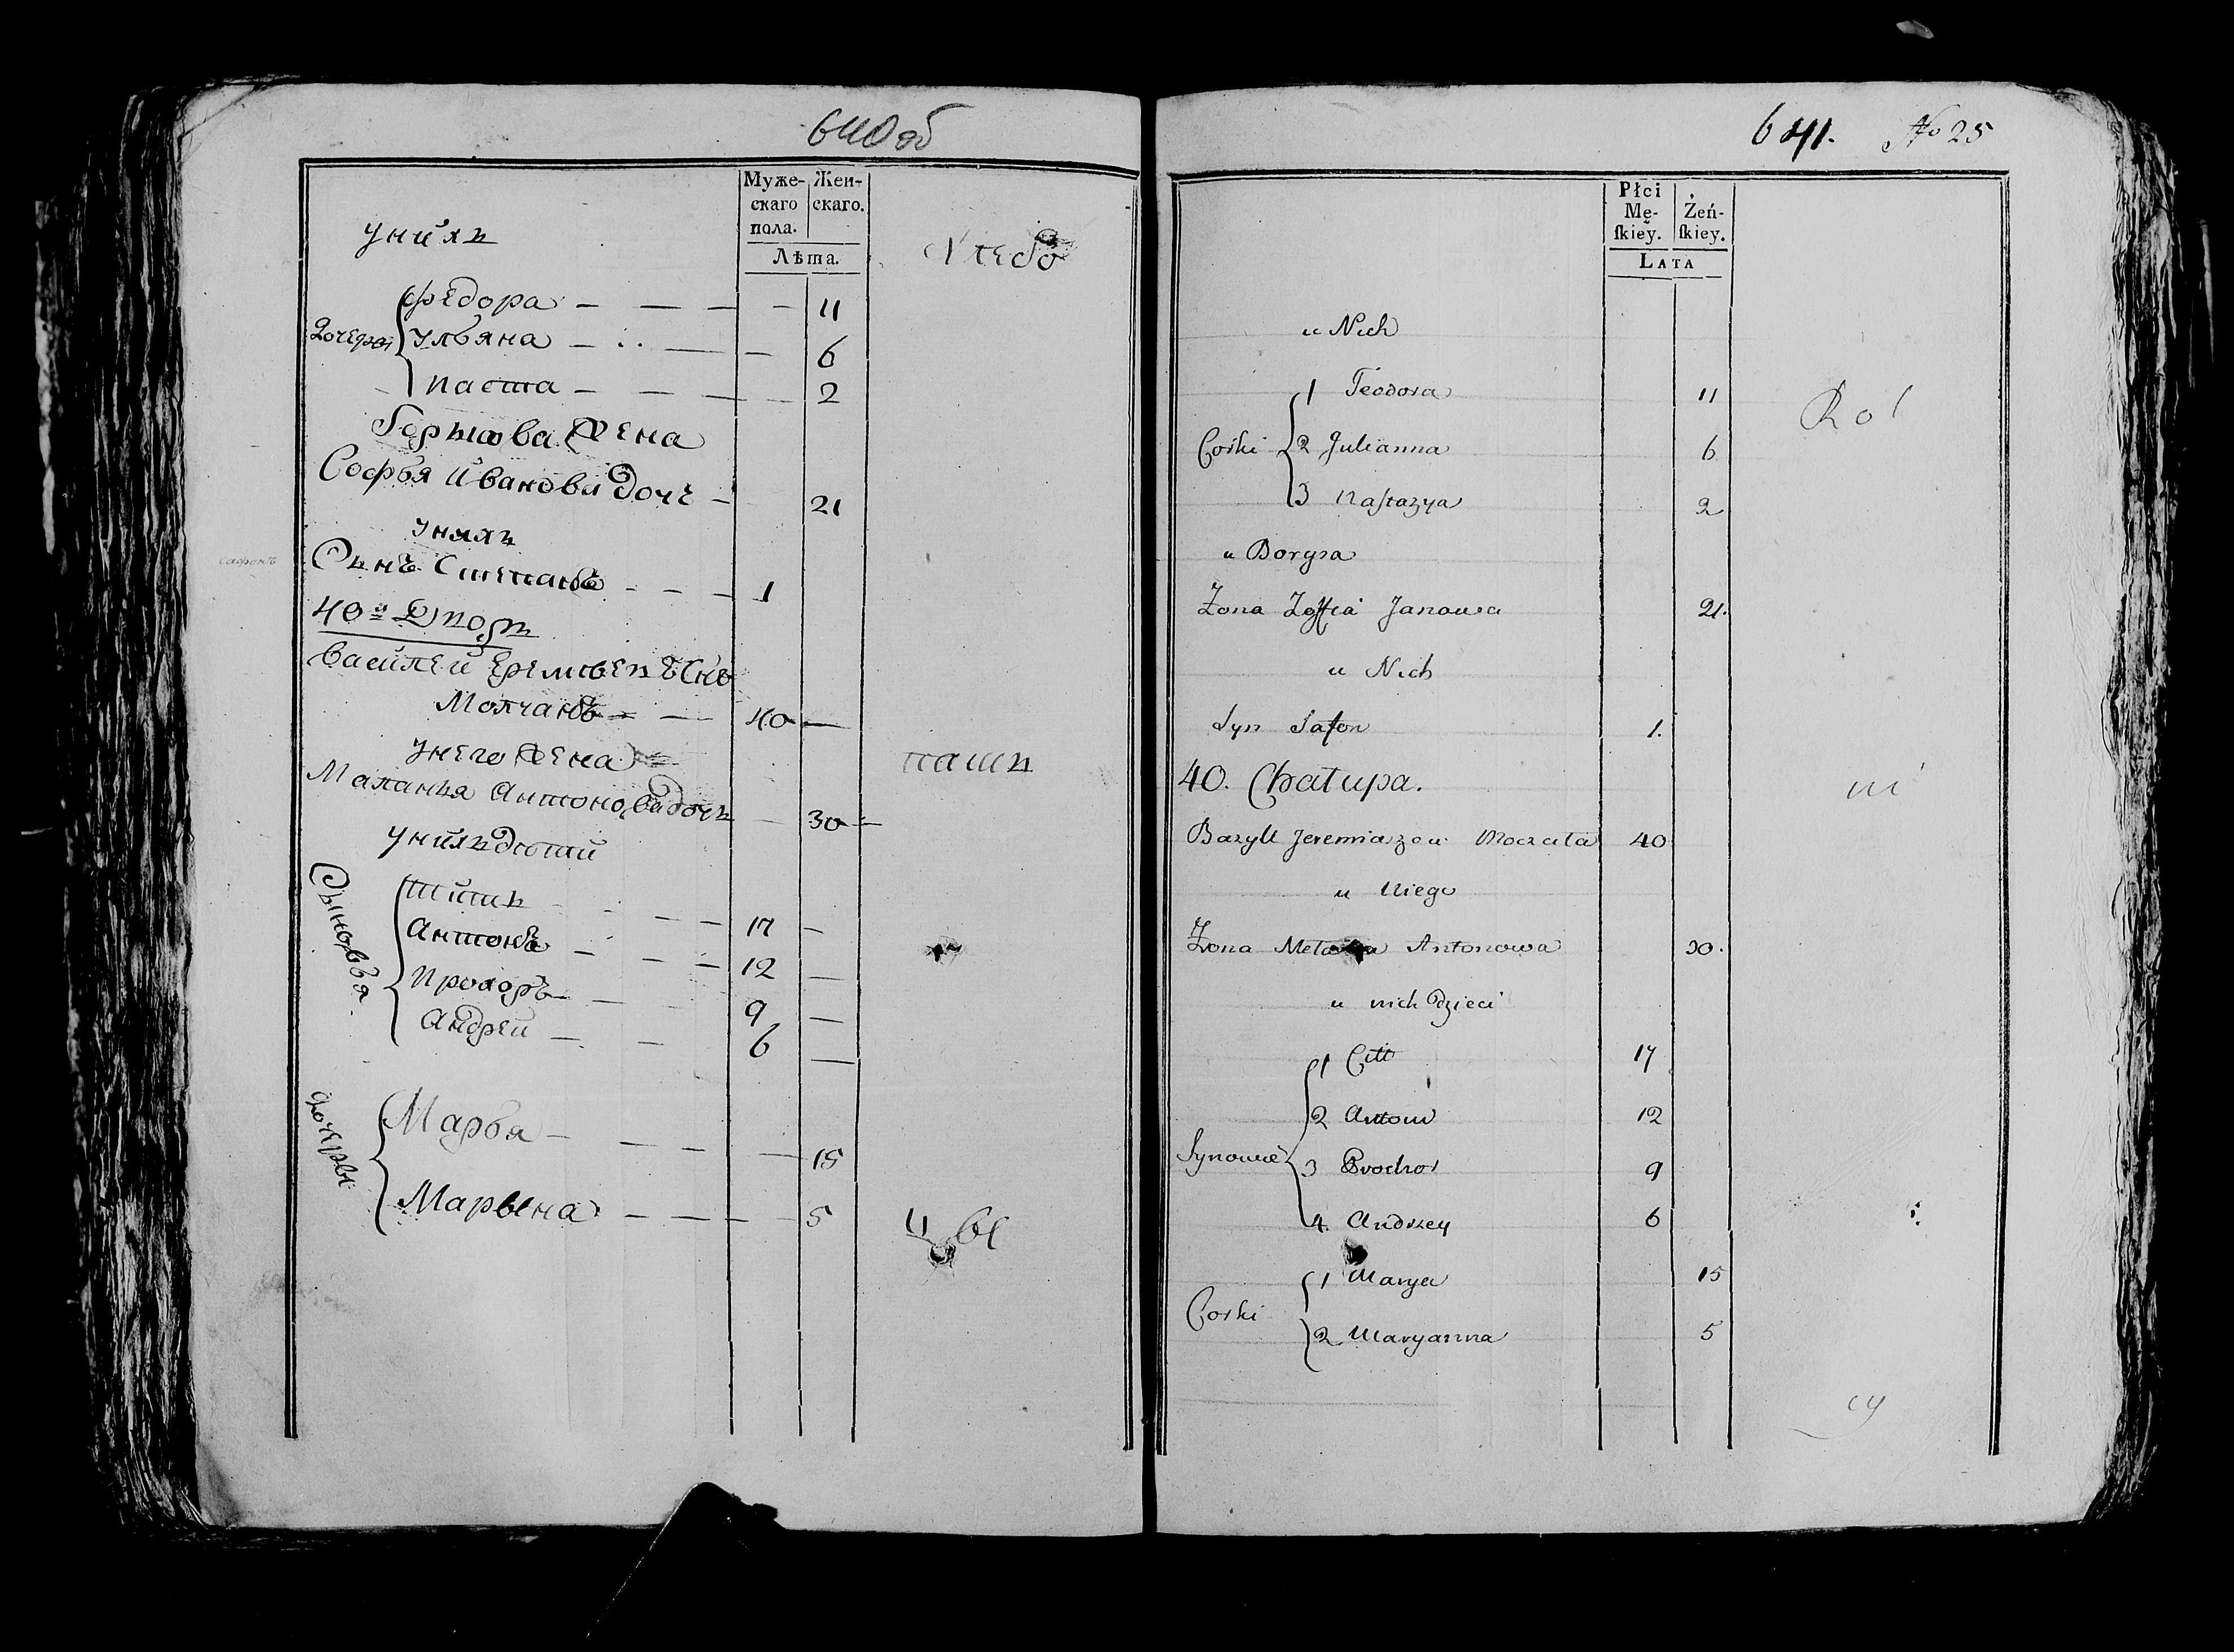 640 об
Муже-
скаго
пола.
Жен-
скаго.
Лѣта.
у нихъ
Хлебо
Дочеры
Федора — — — — 11
Ульяна — — — 6
Наста — — — — 2
Борисова жена
Софья Иванова дочь — 21
у нихъ
сафонъ
Сынъ Степанъ — — — 1
40й Дворъ
Василей Еремѣевъ Снъ
Молчанъ — — 40 —
у него жена
паши
Маланья Антонова дочь — 30 —
у нихъ дѣти
Сыновья
Титъ — — — 17 —
Антонъ — — — 12 —
Прохоръ — — 9 —
Андрей — — 6 —
дочеры
Марья — — — — 15
Марьена — — — — 5
641. No 25
Płci
Mę-
ſkiey.
Żeń-
ſkiey.
LATA
u Nich
Corki
1 Teodora 11
Rol
2 Julianna 6
3 Naſtazya 2
uBorysa
Zona Zoffia Janowa 21.
u Nich
Syn Safon 1.
40. Chałupa.
ni
Bazyli Jeremiaszow 40
u Niego
Zona Antonowa 30.
u nich dzieci
Synowie
1 Citt 17
2 Antoni 12
3 Prochor 9
4. Andrzey 6
Corki
1 Marya 15
2 Maryanna 5
cy